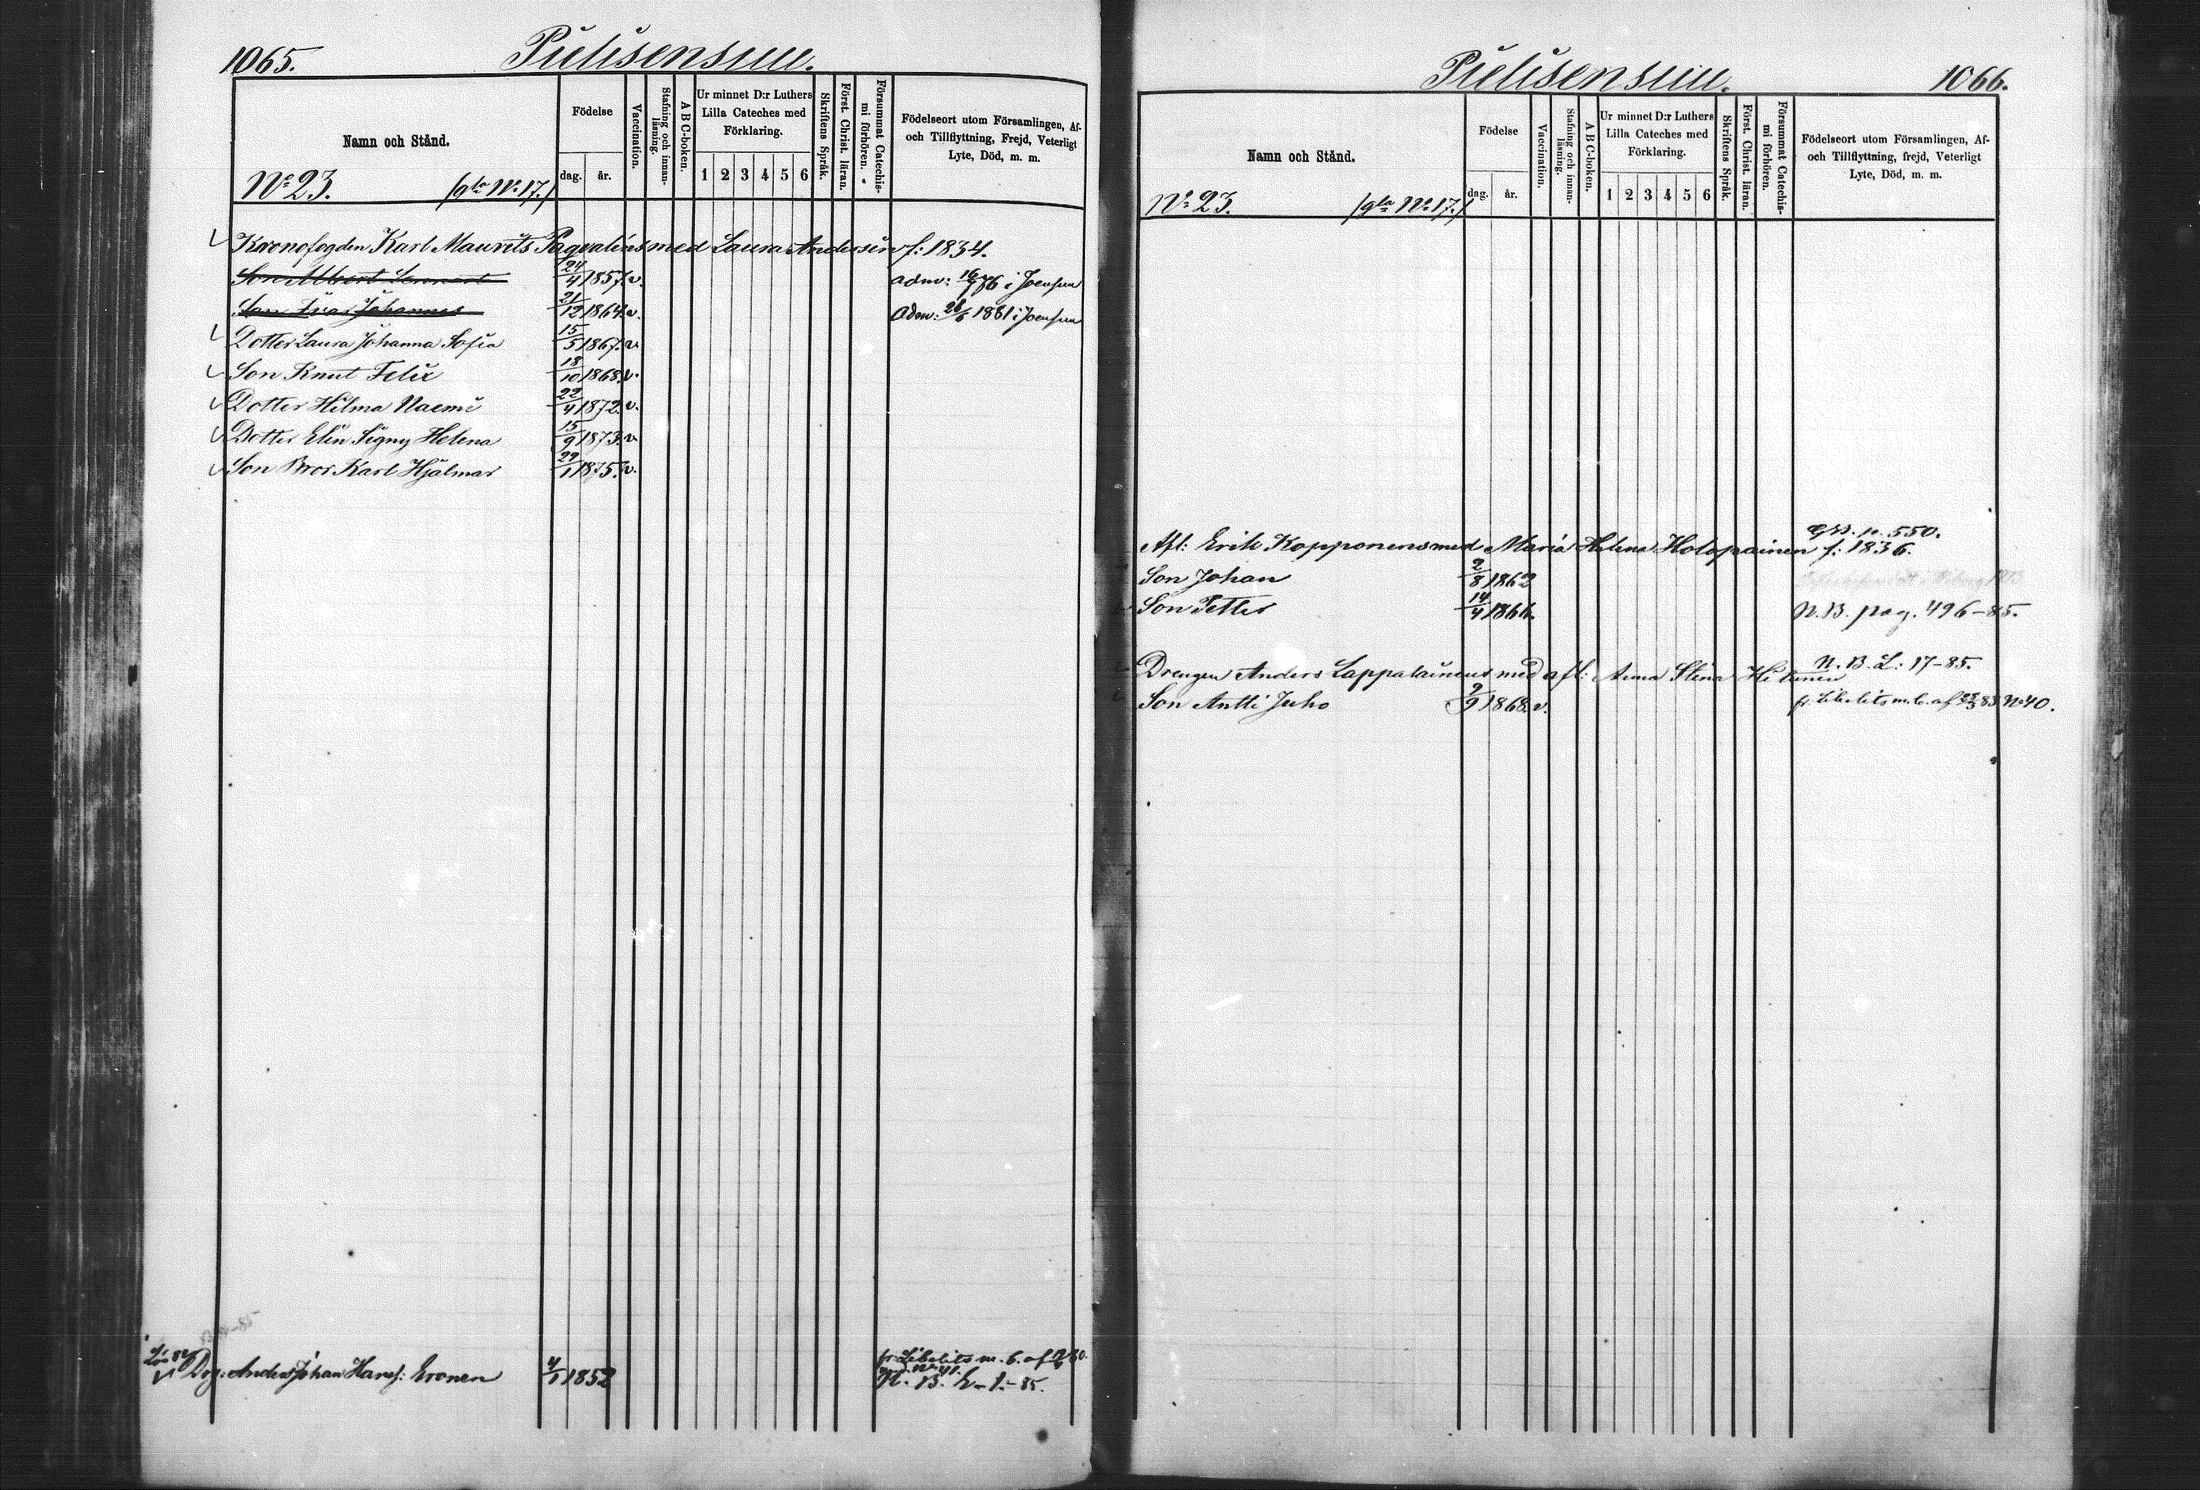 1065. Pielisensuu.
Namn och Stånd.
Födelse
dag. år.
Vaccination.
Stafning och innan-läsning.
A B C-boken.
Ur minnet D:r Luthers
Lilla Cateches med
Förklaring.
1 2 3 4 5 6
Skriftens Språk.
Först. Christ. läran.
Försummat Catechis-mi förhören.
Födelseort utom Församlingen, Af-
och Tillflyttning, Frejd, Veterligt
Lyte, Död, m. m.
No 23. /gla No 17./
Kronofogden Karl Maurits Fagvalens med Laura Andersin f: 1834.
Son Albert Lennart 24/4 1857. v. adm: 16/7 76 i Joensuu
Son Johannes 21/12 1864. v. adm: 26/6 1881 i Joensuu
Dotter Laura Johanna Sofia 15/5 1867. v.
Son Knut Felix 18/10 1868. v.
Dotter Hilma Naemi 22/4 1872. v.
Dotter Elin Signy Helena 15/9 1873. v.
Son Bror Karl Hjalmar 29/1 1875. v.
Drg: Anders Johan Hanss: Eronen 4/1 1852
fr. Libelits m. b. af 80.
N. B. L. 1.-85.
Pielisensuu. 1066.
Namn och Stånd.
Födelse
dag. år.
Vaccination.
Stafning och innan-läsning.
A B C-boken.
Ur minnet D:r Luthers
Lilla Cateches med
Förklaring.
1 2 3 4 5 6
Skriftens Språk.
Först. Christ. läran.
Försummat Catechis-mi förhören.
Födelseort utom Församlingen, Af-
och Tillflyttning, frejd, Veterligt
Lyte, Död, m. m.
No 23. /gla No 17./
p. 550.
Afl: Erik Kopponens med Maria Helena Holopainen f: 1836.
Son Johan 2/8 1862
Son Petter 14/4 1866. N. B. pag. 496-85.
N. B. L: 17-85.
Drengen Anders Lappalainens med afl: Anna Stina Hiltunen
Son Antti Juho 9/9 1868. v. fr. Libelits m. b. af 83 No 40.